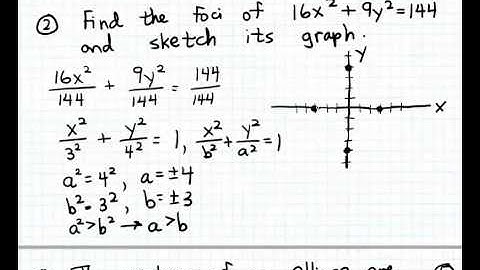 ② Find the foci of 16x² + 9y² = 144
and sketch its graph.
16x²/144 + 9y²/144 = 144/144
x²/3² + y²/4² = 1, x²/b² + y²/a² = 1
a² = 4², a = ±4
b² = 3², b = ±3
a² > b² → a > b
y
x